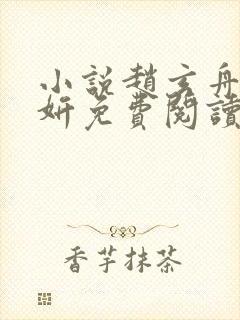 小說趙玄舟
妍免費閱讀
香芋抹茶